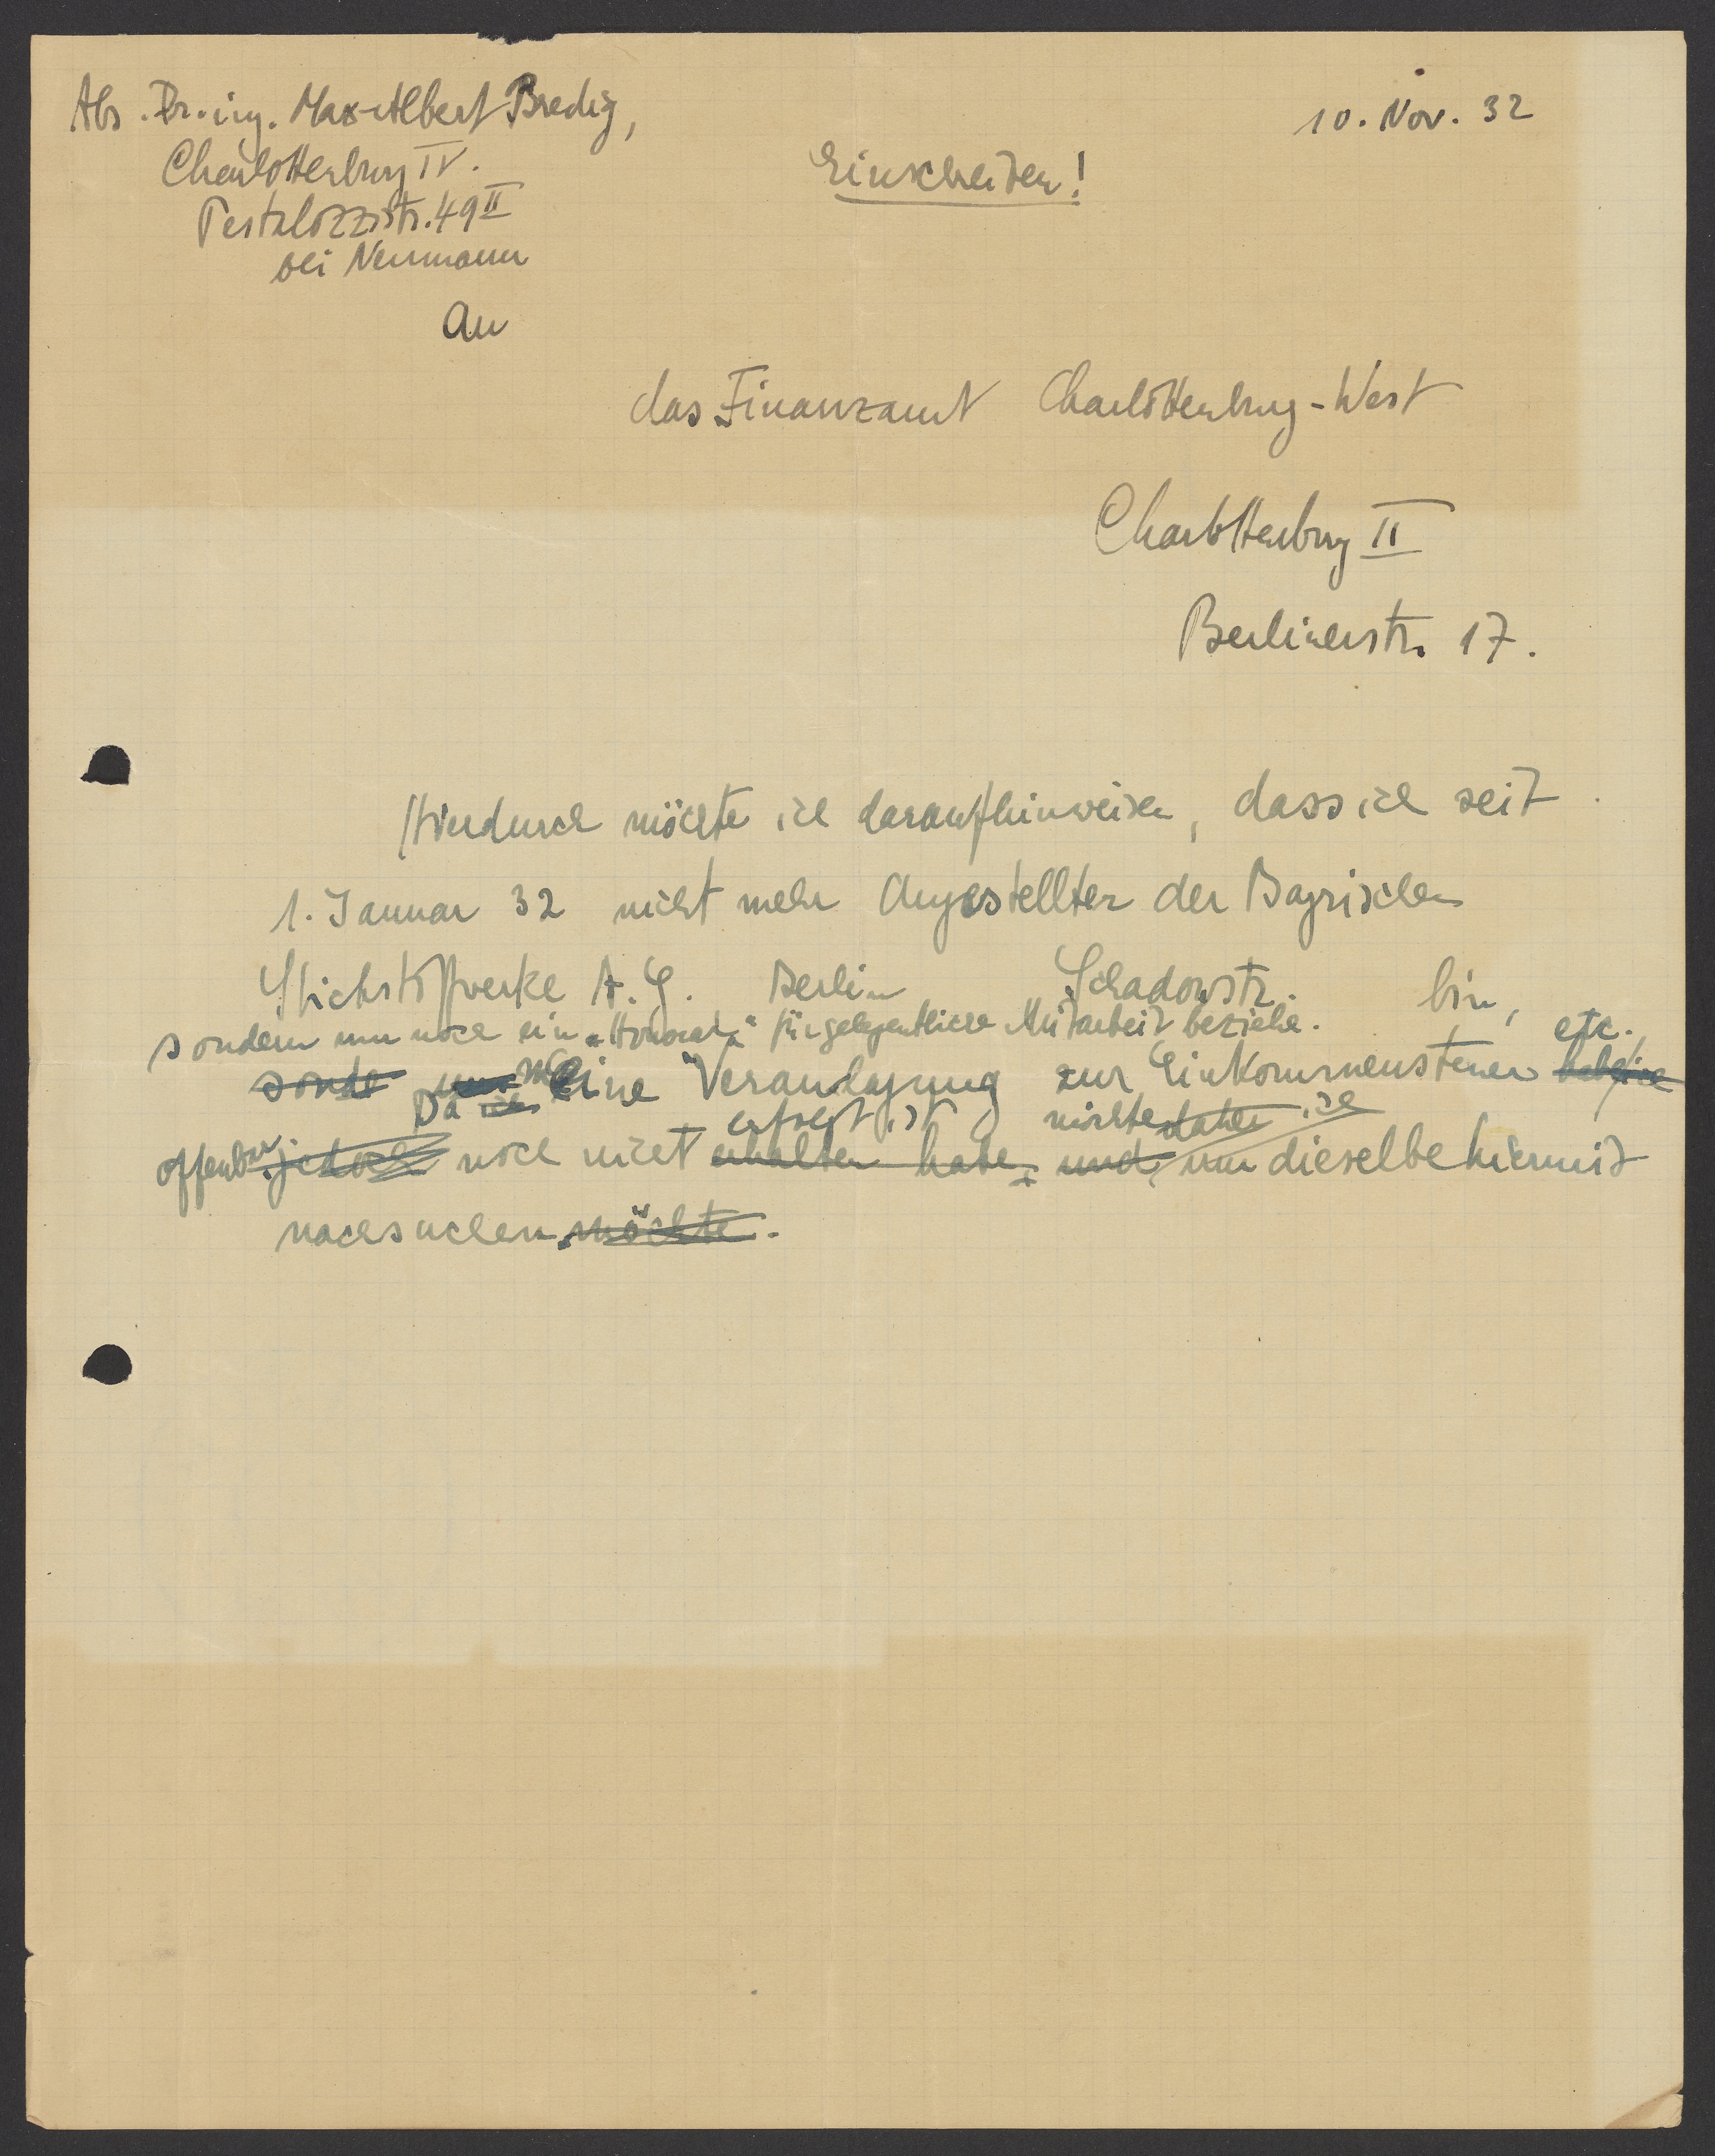 Abs. Dr.-ing. Max-Albert Bredig,
10. Nov. 32
Charlottenburg IV.
Einschreiben!
Pestalozzistr. 49 II
bei Neumann
An
das Finanzamt Charlottenburg-West
Charlottenburg II
Berlinerstr. 17.
Hierdurch möchte ich daraufhinweisen, dass ich seit
1. Januar 32 nicht mehr Angestellter der Bayrischen
Stickstoffwerke A.G. Berlin Schadowstr. bin,
sondern nur noch ein "Honorar" für gelegentliche Mitarbeit beziehe.
etc.,
sonde nur meine Veranlagung zur Einkommensteuer habe ich
Da ich erfolgt ist möchte daher ich
offenbar jedoch noch nicht erhalten habe, und um dieselbe hiermit
nachsuchen möchte.